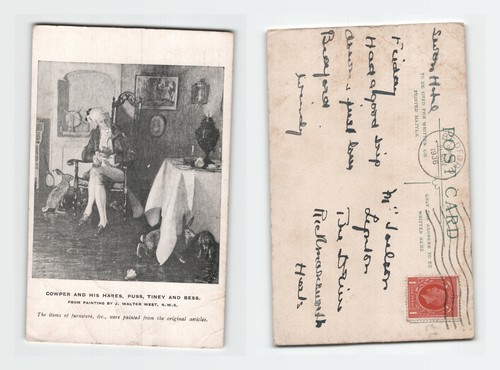 COWPER AND HIS HARES, PUSS, TINEY AND BESS.
FROM PAINTING BY J. WALTER WEST, R.W.S.
The items of furniture, &c., were painted from the original articles.
POST CARD
TO BE USED FOR WRITING OR PRINTED MATTER
ONLY ADDRESS TO BE WRITTEN HERE
1936
Swan Hotel
Friday
Had a good trip
down & put
Bedford
Windy
Lynton
The
Rickmansworth
Herts